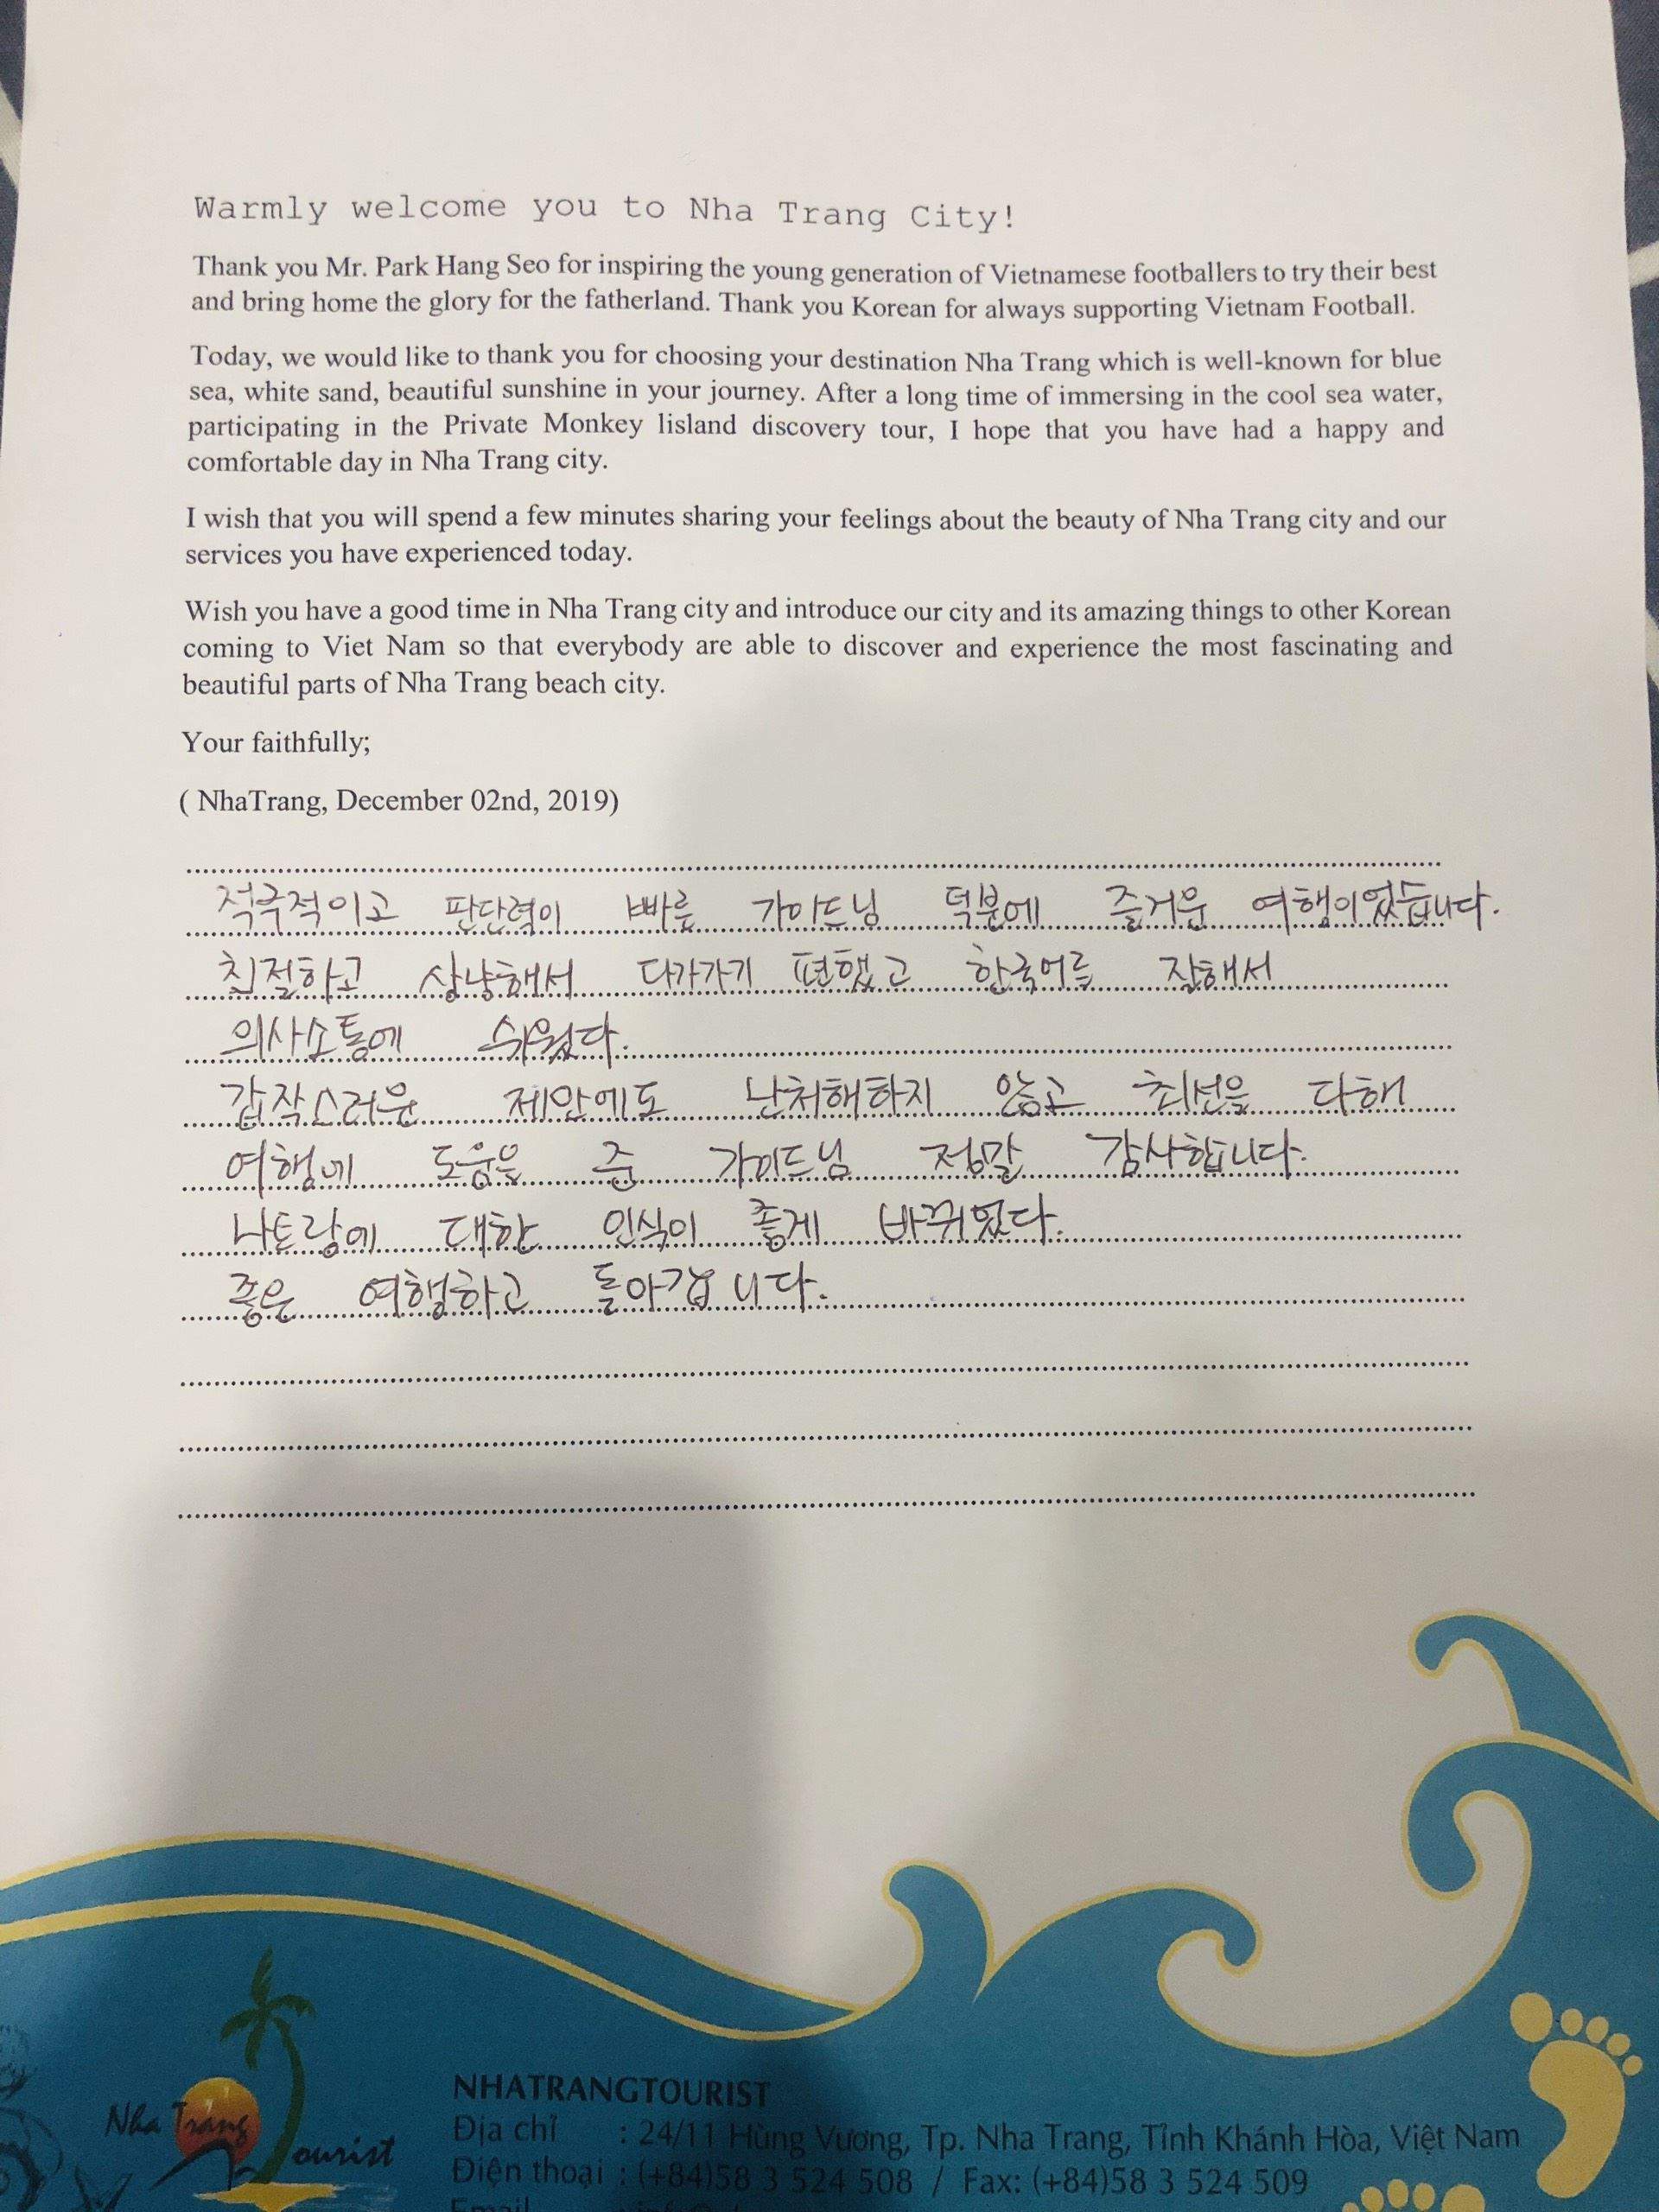 Warmly welcome you to Nha Trang City!
Thank you Mr. Park Hang Seo for inspiring the young generation of Vietnamese footballers to try their best
and bring home the glory for the fatherland. Thank you Korean for always supporting Vietnam Football.
Today, we would like to thank you for choosing your destination Nha Trang which is well-known for blue
sea, white sand, beautiful sunshine in your journey. After a long time of immersing in the cool sea water,
participating in the Private Monkey lisland discovery tour, I hope that you have had a happy and
comfortable day in Nha Trang city.
I wish that you will spend a few minutes sharing your feelings about the beauty of Nha Trang city and our
services you have experienced today.
Wish you have a good time in Nha Trang city and introduce our city and its amazing things to other Korean
coming to Viet Nam so that everybody are able to discover and experience the most fascinating and
beautiful parts of Nha Trang beach city.
Your faithfully;
( NhaTrang, December 02nd, 2019)
적극적이고 판단력이 빠른 가이드님 덕분에 즐거운 여행이었습니다.
친절하고 상냥해서 다가가기 편했고 한국어를 잘해서
의사소통에 쉬웠다.
갑작스러운 제안에도 난처해하지 않고 최선을 다해
여행에 도움을 준 가이드님 정말 감사합니다.
나트랑에 대한 인식이 좋게 바뀌었다.
좋은 여행하고 돌아갑니다.
Nha Trang Tourist
NHATRANGTOURIST
Địa chỉ : 24/11 Hùng Vương, Tp. Nha Trang, Tỉnh Khánh Hòa, Việt Nam
Điện thoại : (+84)58 3 524 508 / Fax: (+84)58 3 524 509
Email